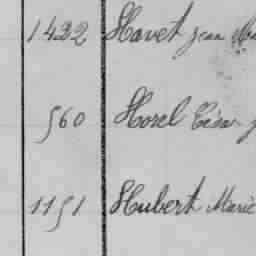 1422 Havet Jean Ma
560 Horel César J
1151 Hubert Marie